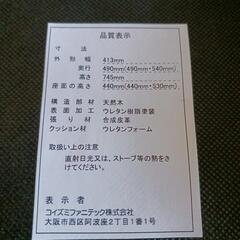 品質表示
寸法
外形 幅 413mm
奥行 490mm(490mm・540mm)
高さ 745mm
座面の高さ 440mm(440mm・530mm)
構造部材 天然木
表面加工 ウレタン樹脂塗装
張り材 合成皮革
クッション材 ウレタンフォーム
取扱い上の注意
直射日光又は、ストーブ等の熱をさ
けてください。
表示者
コイズミファニテック株式会社
大阪市西区阿波座2丁目1番1号